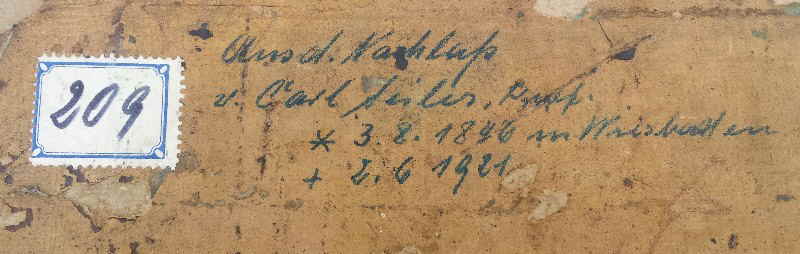 209
Aus d. Nachlaß
v. Carl Seiler, Prof.
* 3. 8. 1846 in Wiesbaden
+ 2. 6 1921